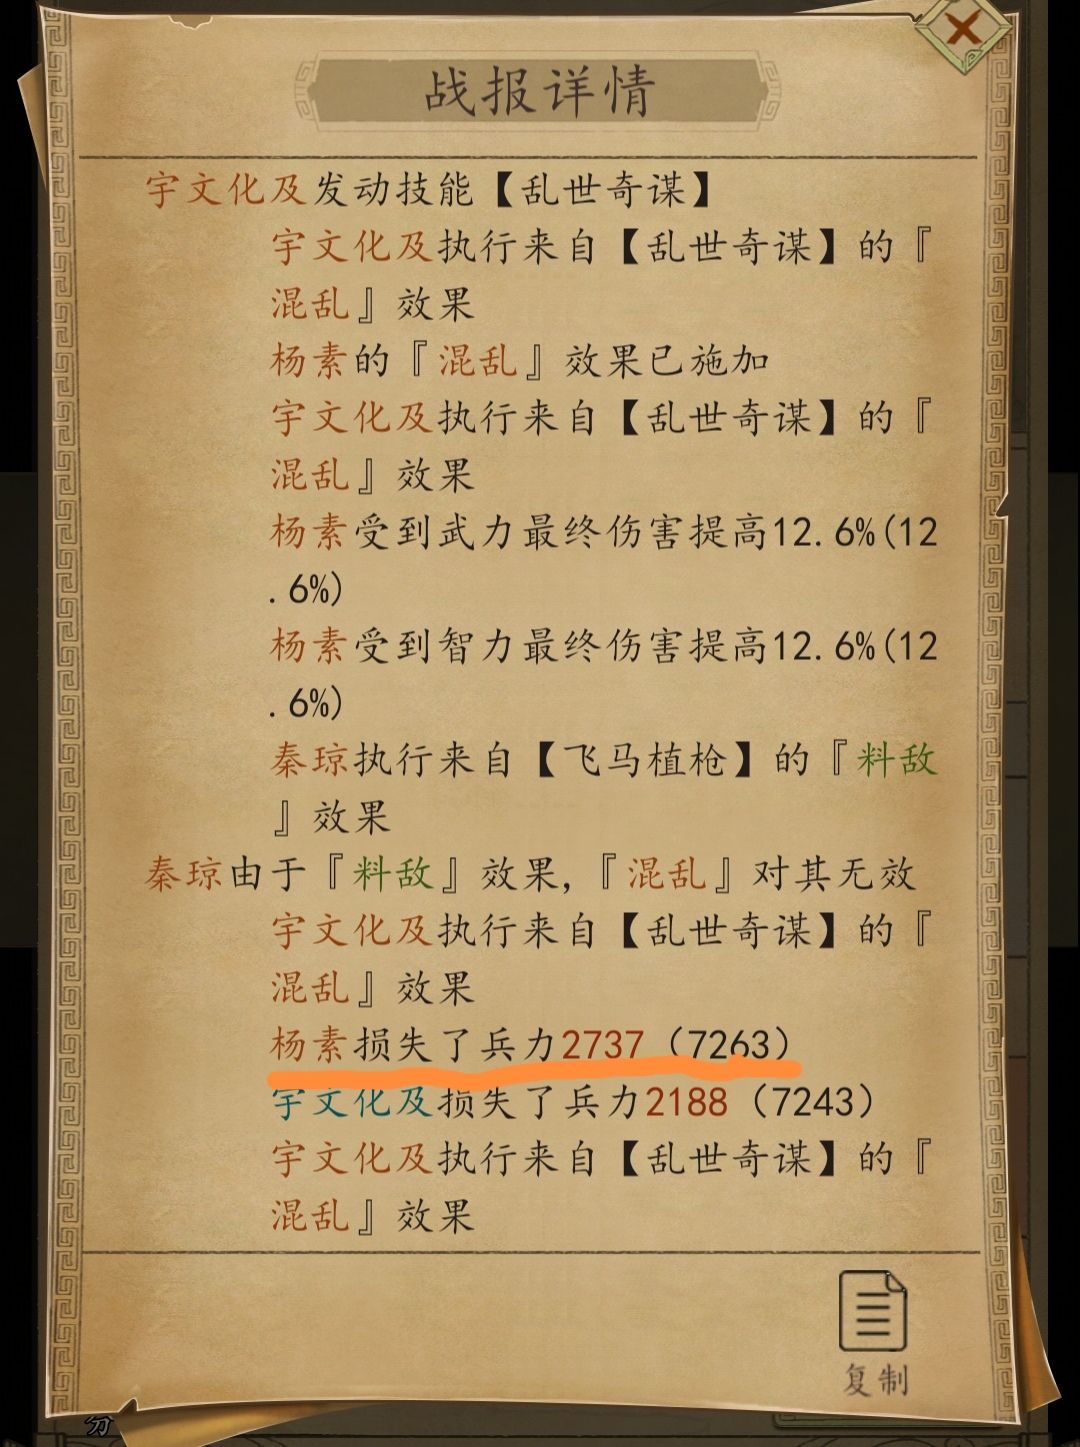 战报详情
宇文化及发动技能【乱世奇谋】
宇文化及执行来自【乱世奇谋】的『
混乱』效果
杨素的『混乱』效果已施加
宇文化及执行来自【乱世奇谋】的『
混乱』效果
杨素受到武力最终伤害提高12.6%(12
.6%)
杨素受到智力最终伤害提高12.6%(12
.6%)
秦琼执行来自【飞马植枪】的『料敌
』效果
秦琼由于『料敌』效果,『混乱』对其无效
宇文化及执行来自【乱世奇谋】的『
混乱』效果
杨素损失了兵力2737（7263）
宇文化及损失了兵力2188（7243）
宇文化及执行来自【乱世奇谋】的『
混乱』效果
复制